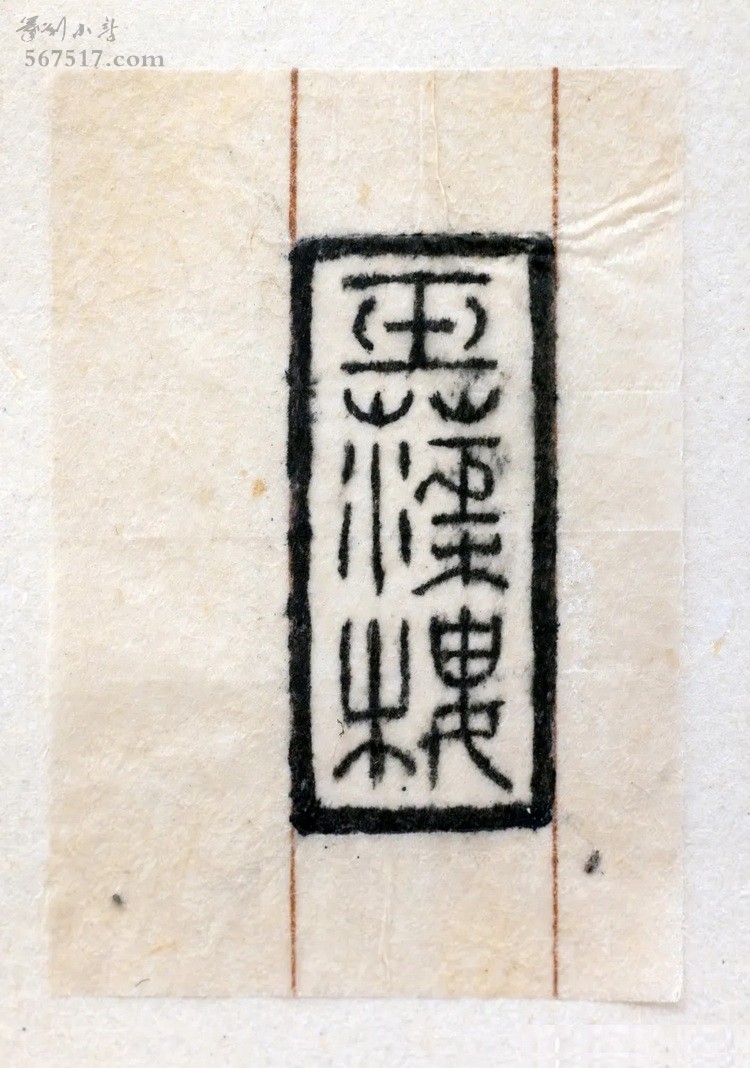 篆刻小站
567517.com
蕖樓